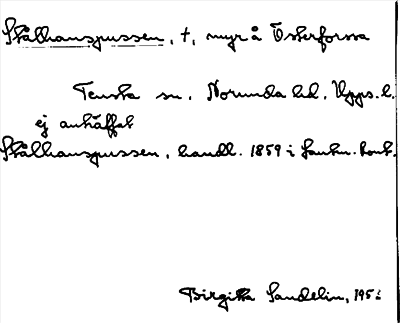 Stålhanspussen, t, myr å Österforssa
Tensta sn, Norunda hd, Upps. l.
ej anträffat
Stålhanspussen, handl. 1859 i Lantm. kont.
Birgitta Sandelin, 195